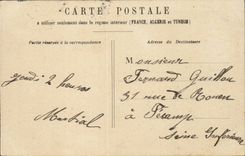 CARTE POSTALE
a utiliser seulement dans le regime intérieur (FRANCE, ALGERIE et TUNISIE)
Partie réservée à la correspondance
Adresse du Destinataire
Monsieur
Fernand Guillou
31 rue de Rouen
à Fécamp
Seine Inférieure
jeudi 2 heures
Martial